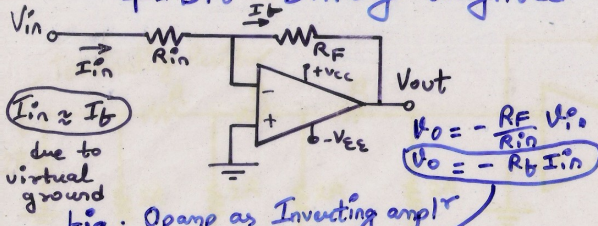 Vin
If
Iin
Rin
RF
+Vcc
-
+
-VEE
Vout
Iin ≈ If
due to
virtual
ground
Vo = - RF/Rin Vin
Vo = - Rf Iin
fig. Opamp as Inverting ampl^r